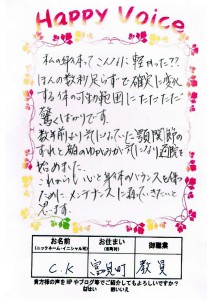 Happy Voice
私の身体ってこんなに軽かった??
ほんの数秒足らずで確実に変化
する体の可動範囲にただただただ
驚くばかりです。
数年前より気になっていた顎関節の
ずれと顔のゆがみが気になり通院を
始めました。
これからも心と身体のバランスを保つ
ためにメンテナンスに通って
お名前
(ニックネーム・イニシャル可)
お住まい
(市町村)
御職業
C.K
富見町
教員
貴方様の声をHPやブログ等でご紹介してもよろしいですか?
はい
いいえ